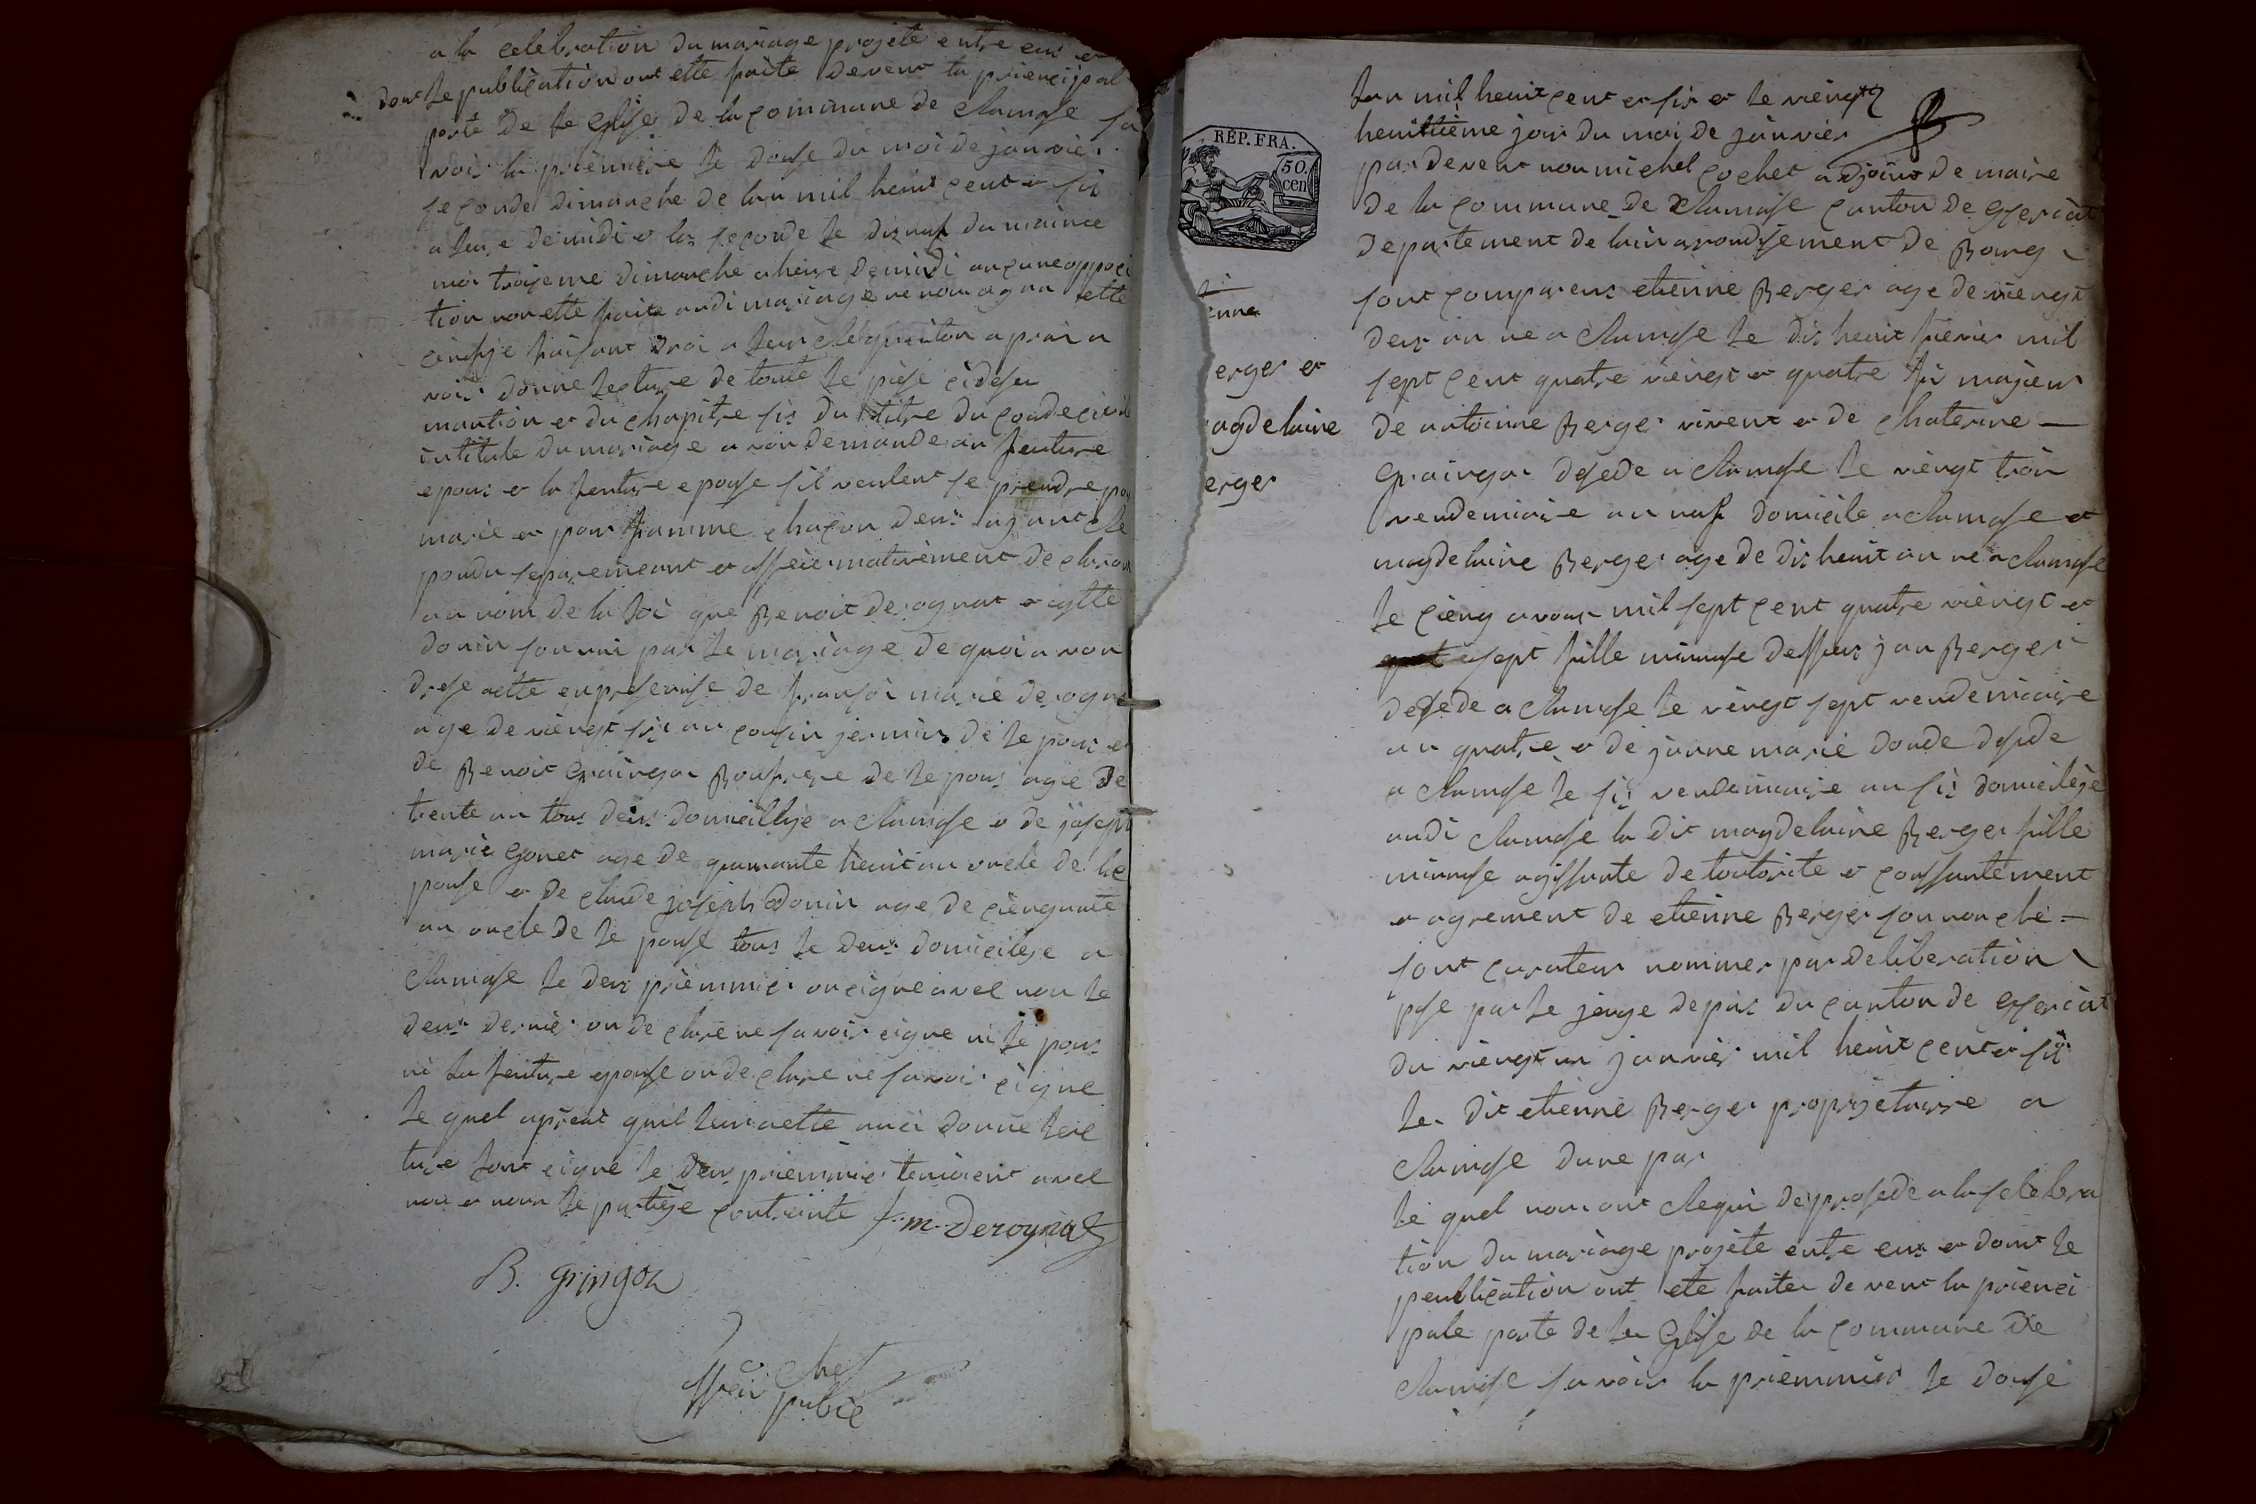 a la celebration du mariage projete entre eux et
dont le publication ont ette faite devent la prieneipal
porte de le Glise de la commune de Clamose sa
voir la priemiere le douse du moi de janvier
seconde dimanche de lan mil heuit cent et six
a leure de midi et la seconde le disnaf du maime
moi troiseme dimanche a heire demidi aucune oppoci
tion non ette faite audi mariage ne nou agan ette
faisant droi a leur aprai a
voir donne lecture de toute le piese cideseu
mantion et du chapitre six du titre du coude civil
intitule du mariage avon demande au feuture
epous et la feuture epouse sil veulent se prendre pour
marie et pour famme chacun deux agant re
pondu separemeant et affeiermativement declaron
au nom de la loi que Benoit derognat et agtte
donin son uni par le mariage de quoi avon
drese aette en presense de fransoi marie derogna
age de viengt six an cousin jermins de le pous et
de Benoit Graingon Boufrere de le pous age de
trente an tous deus domicillije a Clamose et de joseph
marie Gonet age de quarante heuit an oncle de le
pouse et de claude joseph donin age de ciengante
an oncle de le pouse tous le deux domicilije a
Clamose le deus priemmier on cigne avec nou le
deus dernier on declare ne savoir cigne ni le pous
ni la feuture epouse on declare ne savoir cigne
le quel apreai quil leur aette auci donne lec
ture font cigne le deus priemmier temoient avec
nou et nonn le partije contraiente f. m. Derognat
B. gringoz
Cochet
offecier public
RÉP. FRA.
50.
cen
enne
erger et
agdelaine
erger
Lan mil heuit cent et six et le viengt
heuitiième jour du moi de janvier
par devent nou michel Cochet adjoint de maire
de la commune de Clamose canton de
departement de lain arondisement de Bourg
sont comparens etienne Berger age de viengt
deux an ne a Clamose le dix heuit fievrier mil
sept cent quatre viengt et quatre fis majeur
de antoinne Berger vivent et de Chaterine
Graingon desede a Clamose le viengt troi
vendemiaire an naf domicile a Clamose et
magdelaine Berger age de dix heuit an ne a Clamose
le cieng avous mil sept cent quatre viengt et
sept fille minause deffeus jan Berger
desede a Clamose le viengt sept vendemiaire
an quatre et de janne marie donde desede
a Clamose le six vendemiaire an six domicilije
audi Clamose la dit magdelaine Berger fille
minause agissante de loutorite et conssantement
et agrement de etienne Berger son noncle
sont curateur nommer par deliberation
pse par le jenge depais du canton de
du viengt un janvier mil heuit cent et six
le dit etienne Berger proprijetaire a
Clamose dune par
le quel nou ont Requi de prosede a la selebra
tion du mariage projete entre eux et dont le
peublication ont ete faites devent la prienci
pale porte de lea Glise de la commune de
Clamose savoir la priemmier le douse